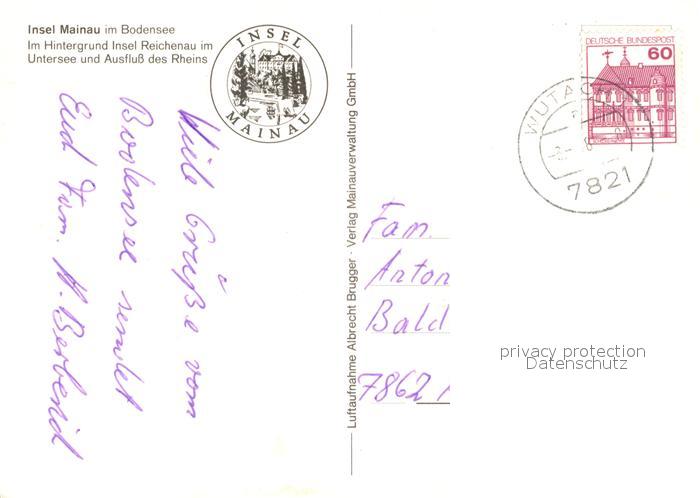 Insel Mainau im Bodensee
Im Hintergrund Insel Reichenau im
Untersee und Ausfluß des Rheins
INSEL
MAINAU
Viele Grüße vom
Bodensee sendet
Euch Fam. H.
Luftaufnahme Albrecht Brugger · Verlag Mainauverwaltung GmbH
DEUTSCHE BUNDESPOST
60
WUTA
7821
Fam.
Anton
Bald
7862
privacy protection
Datenschutz